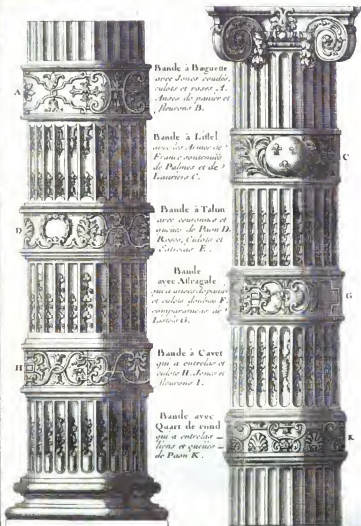 A
Bande à Baguette
avec Joncs coudés,
culots et roses A.
Anses de panier et
fleurons B.
Bande à Listel
avec les Armes de
France soutenües
de Palmes et de
Lauriers C.
C
Bande à Talun
avec couronnes et
queües de Paon D.
Roses, Culots et
E.
D
Bande
avec Astragale
qui a anses de panier
et culots doubles F.
de
G.
G
Bande à Cavet
qui a entrelas et
culots H. Joncs et
fleurons I.
H
Bande avec
Quart de rond
qui a entrelas
liens et queües
de Paon K.
K